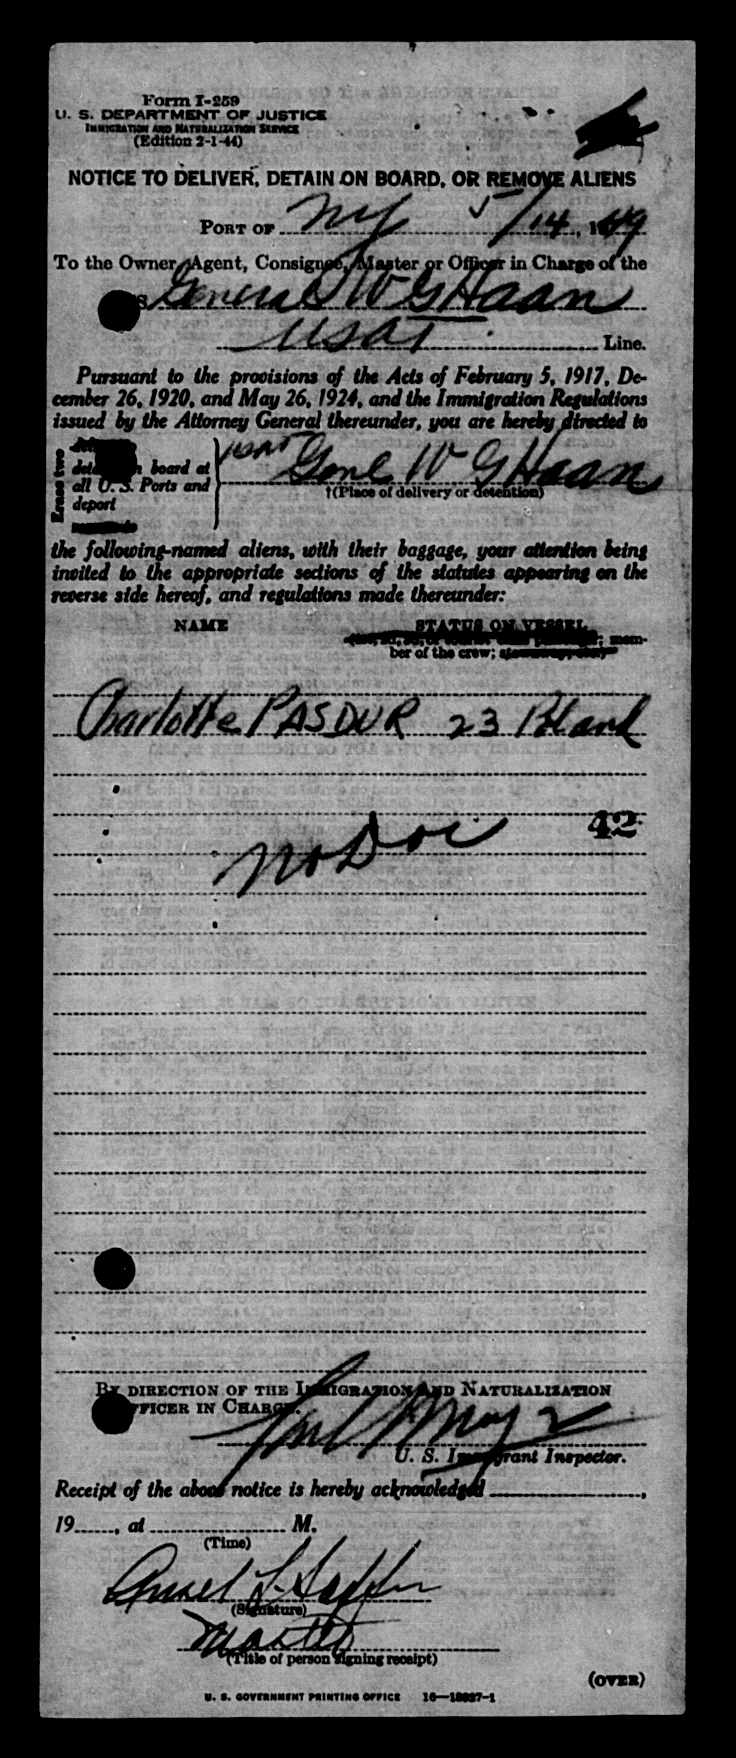 Form I-259
U. S. DEPARTMENT OF JUSTICE
IMMIGRATION AND NATURALIZATION SERVICE
(Edition 2-1-44)
NOTICE TO DELIVER, DETAIN ON BOARD, OR REMOVE ALIENS
PORT OF NY 5/14, 1949
To the Owner, Agent, Consignee, Master or Officer in Charge of the
S. General W G Haan
USAT Line.
Pursuant to the provisions of the Acts of February 5, 1917, De-
cember 26, 1920, and May 26, 1924, and the Immigration Regulations
issued by the Attorney General thereunder, you are hereby directed to
Erase two
board at
all U. S. Ports and
deport
USAT Genl W G Haan
†(Place of delivery or detention)
the following-named aliens, with their baggage, your attention being
invited to the appropriate sections of the statutes appearing on the
reverse side hereof, and regulations made thereunder:
NAME STATUS ON VESSEL
mem-
ber of the crew;
Charlotte PASDUR 23 Poland
42
No Doc
BY DIRECTION OF THE IMMIGRATION AND NATURALIZATION
OFFICER IN CHARGE.
U. S. Immigrant Inspector.
Receipt of the above notice is hereby acknowledged
19, at M.
(Time)
(Signature)
Master
(Title of person signing receipt)
(OVER)
U. S. GOVERNMENT PRINTING OFFICE 16—18927-1